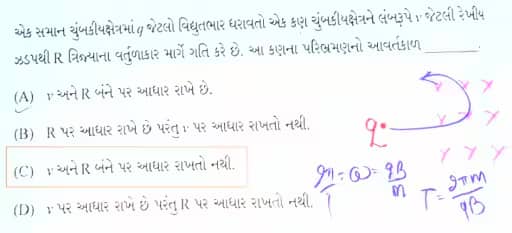 એક સમાન ચુંબકીયક્ષેત્રમાં q જેટલો વિદ્યુતભાર ધરાવતો એક કણ ચુંબકીયક્ષેત્રને લંબરૂપે v જેટલી રેખીય
ઝડપથી R ત્રિજ્યાના વર્તુળાકાર માર્ગે ગતિ કરે છે. આ કણના પરિભ્રમણનો આવર્તકાળ ________.
(A) v અને R બંને પર આધાર રાખે છે.
(B) R પર આધાર રાખે છે પરંતુ v પર આધાર રાખતો નથી.
(C) v અને R બંને પર આધાર રાખતો નથી.
(D) v પર આધાર રાખે છે પરંતુ R પર આધાર રાખતો નથી.
q
2π/T = ω = qB/m
T = 2πm/qB